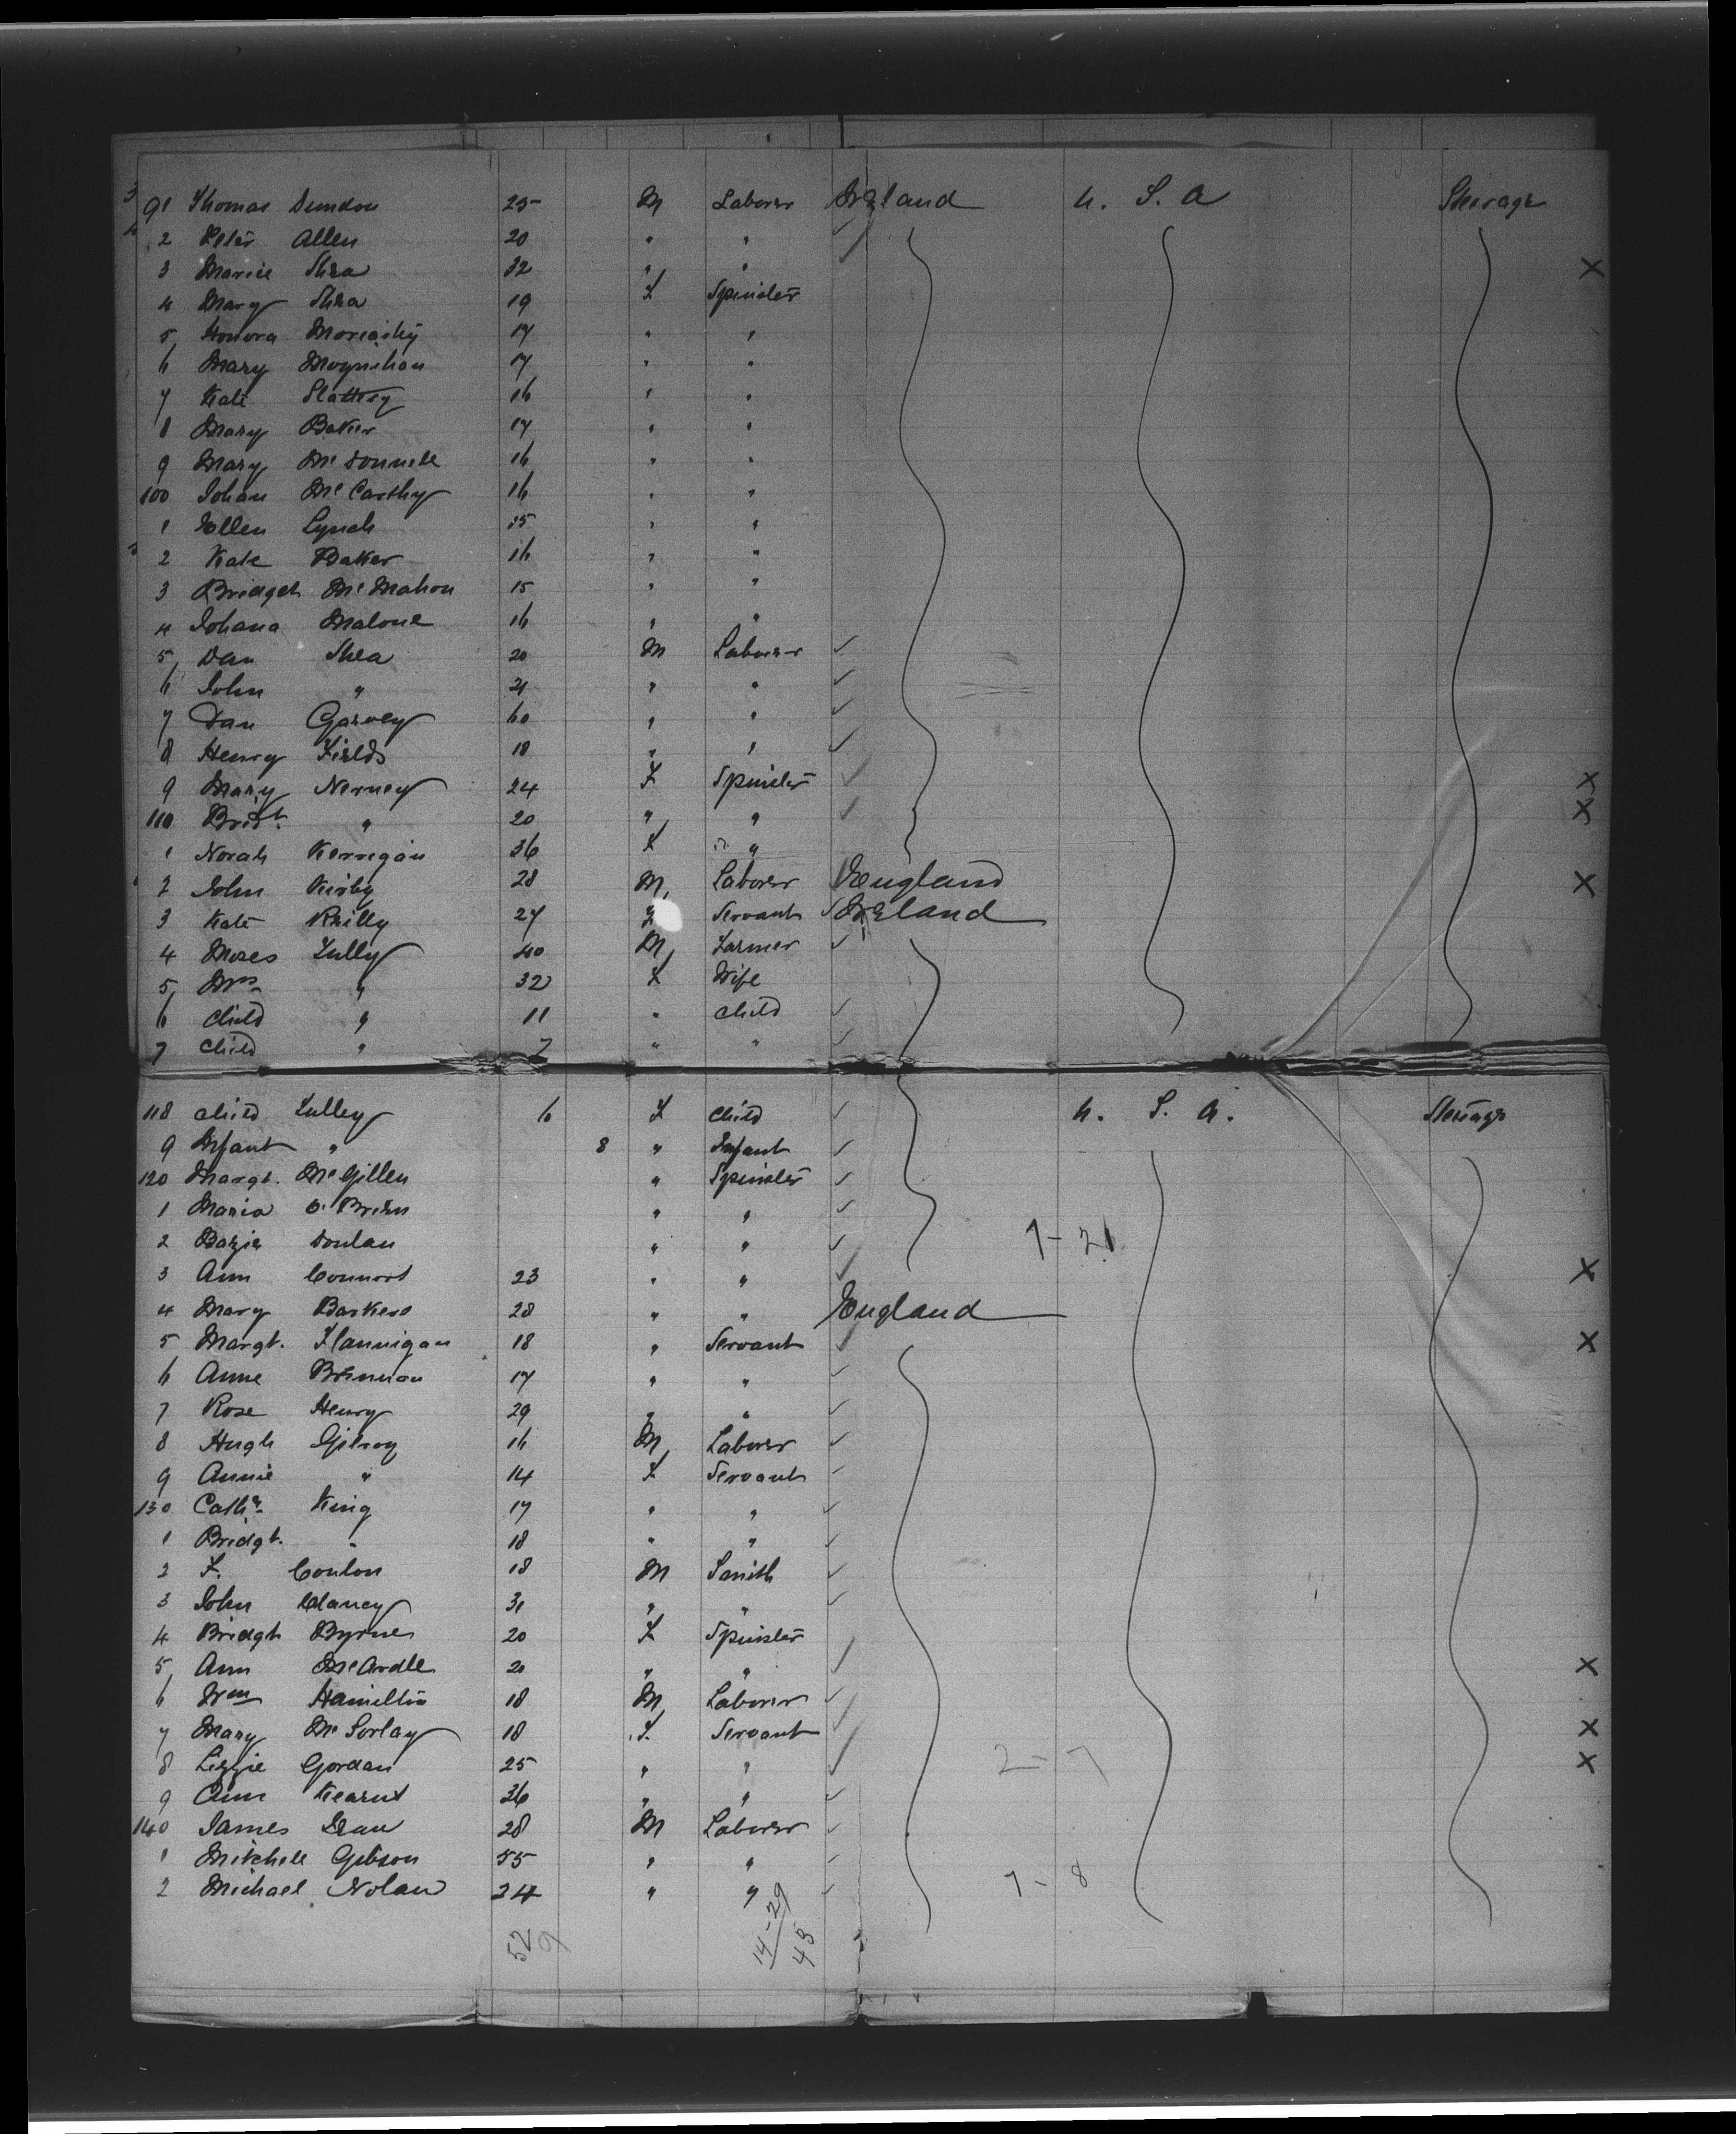 91 Thomas Dundon 25 M Laborer Ireland U. S. A Steerage
2 Peter Allen 20 " "
3 Maurice Shea 32 " " X
4 Mary Shea 19 F Spinster
5 Honora Moriarty 17 " "
6 Mary Moynihan 17 " "
7 Kate Slattery 16 " "
8 Mary Baker 17 " "
9 Mary McDonnell 16 " "
100 Johan McCarthy 16 " "
1 Ellen Lynch 15 " "
2 Kate Baker 16 " "
3 Bridget McMahon 15 " "
4 Johana Malone 16 " "
5 Dan Shea 20 M Laborer
6 John " 21 " "
7 Dan Garvey 60 " "
8 Henry Fields 18 " "
9 Mary Nerney 24 F Spinster X
110 Bridt. " 20 " " X
1 Norah Kerrigan 36 F "
2 John Kirby 28 M Laborer England X
3 Kate Reilly 27 Servant Ireland
4 Moses Lully 40 M Farmer
5 Mrs " 32 F Wife
6 Child " 11 " Child
7 Child " 7 " "
118 Child Lulley 6 F Child U. S. A. Steerage
9 Infant " 8 " Infant
120 Margt. McGillen " Spinster
1 Maria O'Brien " "
2 Donlan " " 1-21
3 Ann Connors 23 " " X
4 Mary 28 " " England
5 Margt. Flannigan 18 " Servant X
6 Anne Brennan 17 " "
7 Rose Henry 29 " "
8 Hugh Gilroy 16 M Laborer
9 Annie " 14 F Servant
130 Cathe. King 17 " "
1 Bridgt. " 18 " "
2 F. Conlon 18 M Smith
3 John Clancy 31 " "
4 Bridgt Byrne 20 F Spinster
5 Ann McArdle 20 " " X
6 Wm Hamilton 18 M Laborer
7 Mary McSorlay 18 F. Servant X
8 Lizzie Gordan 25 " " 2-7 X
9 Ann Kearns 36 " "
140 James 28 M Laborer
1 Mitchell Gibson 55 " "
2 Michael Nolan 24 " " 7-8
52 9 14-29 43